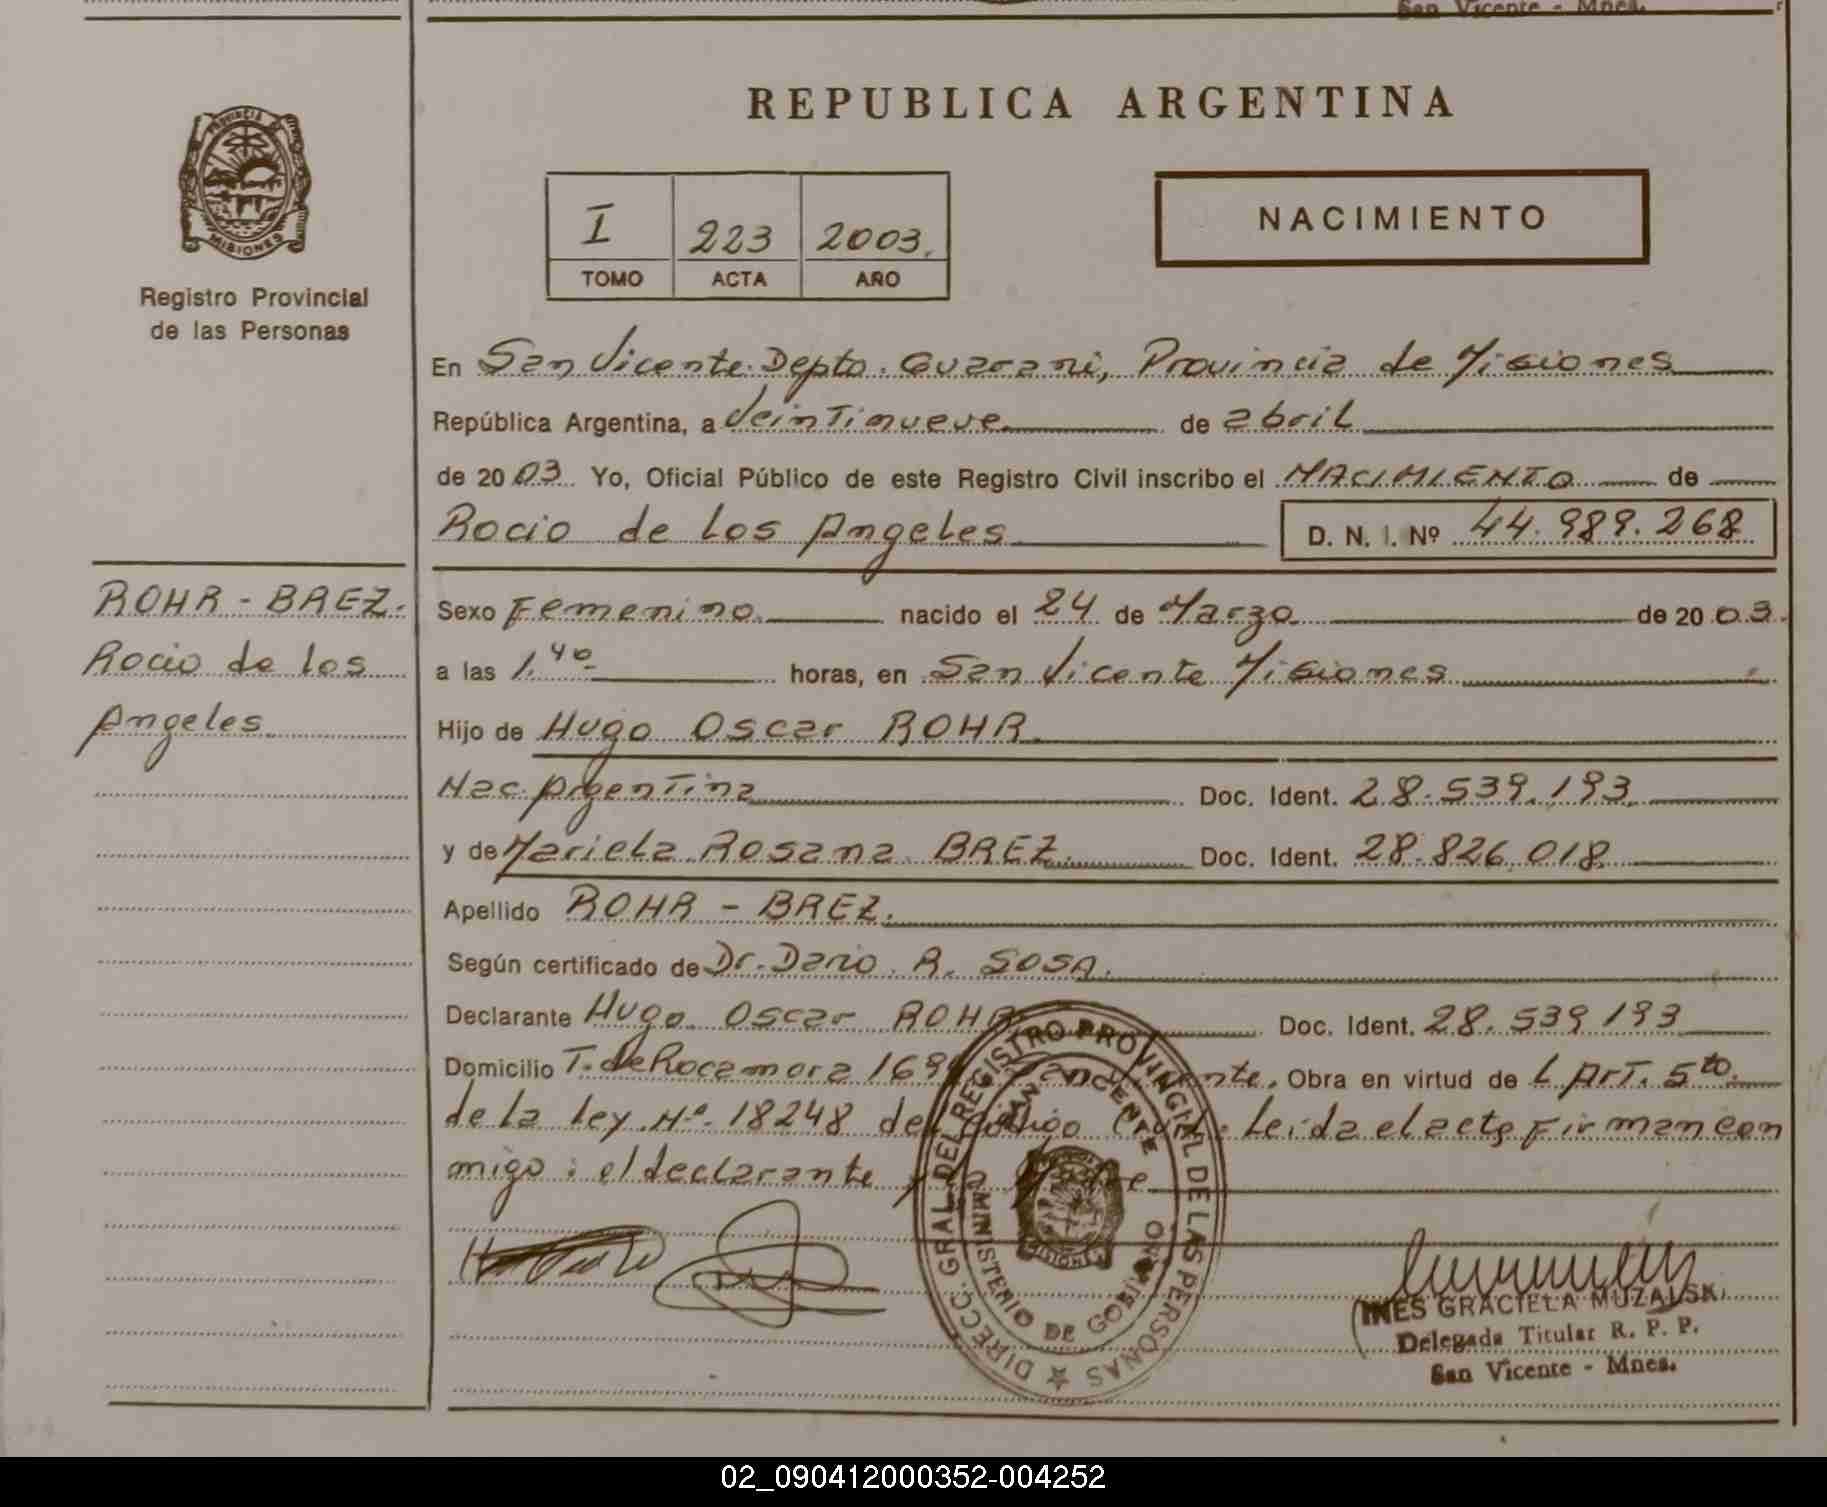 San Vicente - Mnes.
REPUBLICA ARGENTINA
PROVINCIA DE
MISIONES
Registro Provincial
de las Personas
I 223 2003.
TOMO ACTA AÑO
NACIMIENTO
En San Vicente Depto. Guarani, Provincia de Misiones
República Argentina, a Veintinueve de abril
de 2003 Yo, Oficial Público de este Registro Civil inscribo el NACIMIENTO de
Rocio de los Angeles D. N. I. Nº 44.989.268
ROHR - BREZ.
Rocio de los
Angeles.
Sexo Femenino nacido el 24 de Marzo de 2003.
a las 1.40 horas, en San Vicente Misiones
Hijo de Hugo Oscar ROHR.
Nac. Argentina Doc. Ident. 28.539.193
y de Mariela Rosana BREZ. Doc. Ident. 28.826.018
Apellido ROHR - BREZ.
Según certificado de Dr. Dario R. SOSA.
Declarante Hugo Oscar ROHR Doc. Ident. 28.539.193
Domicilio T. de Rocamora San Vicente. Obra en virtud de l Art. 5to.
de la Ley Nº 18248 del Código Civil. Leída el acta firman con
migo: el declarante y la Madre
DIRECC. GRAL. DEL REGISTRO PROVINCIAL DE LAS PERSONAS
SAN VICENTE
MINISTERIO DE GOBIERNO
MISIONES
INES GRACIELA MUZALSKI
Delegada Titular R. P. P.
San Vicente - Mnes.
02_090412000352-004252